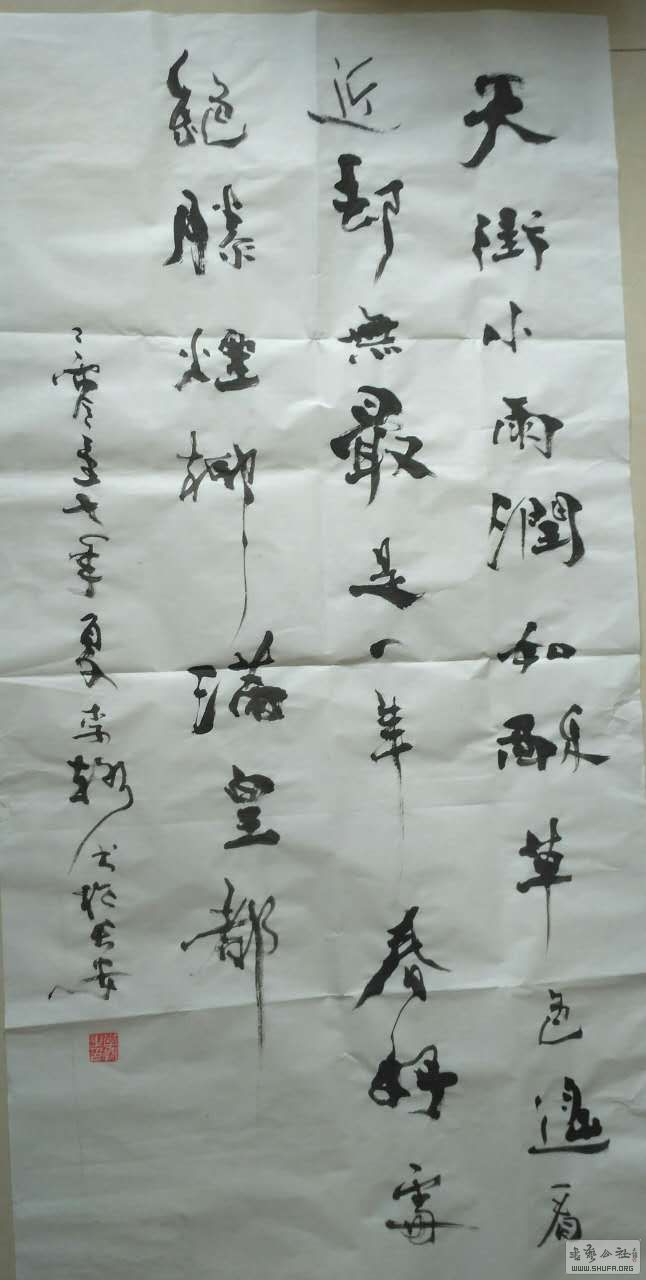 天街小雨潤如酥草色遥看
近却無最是一年春好處
絕勝煙柳滿皇都
二零壹七年夏李 书於長安
書藝公社
WWW.SHUFA.ORG